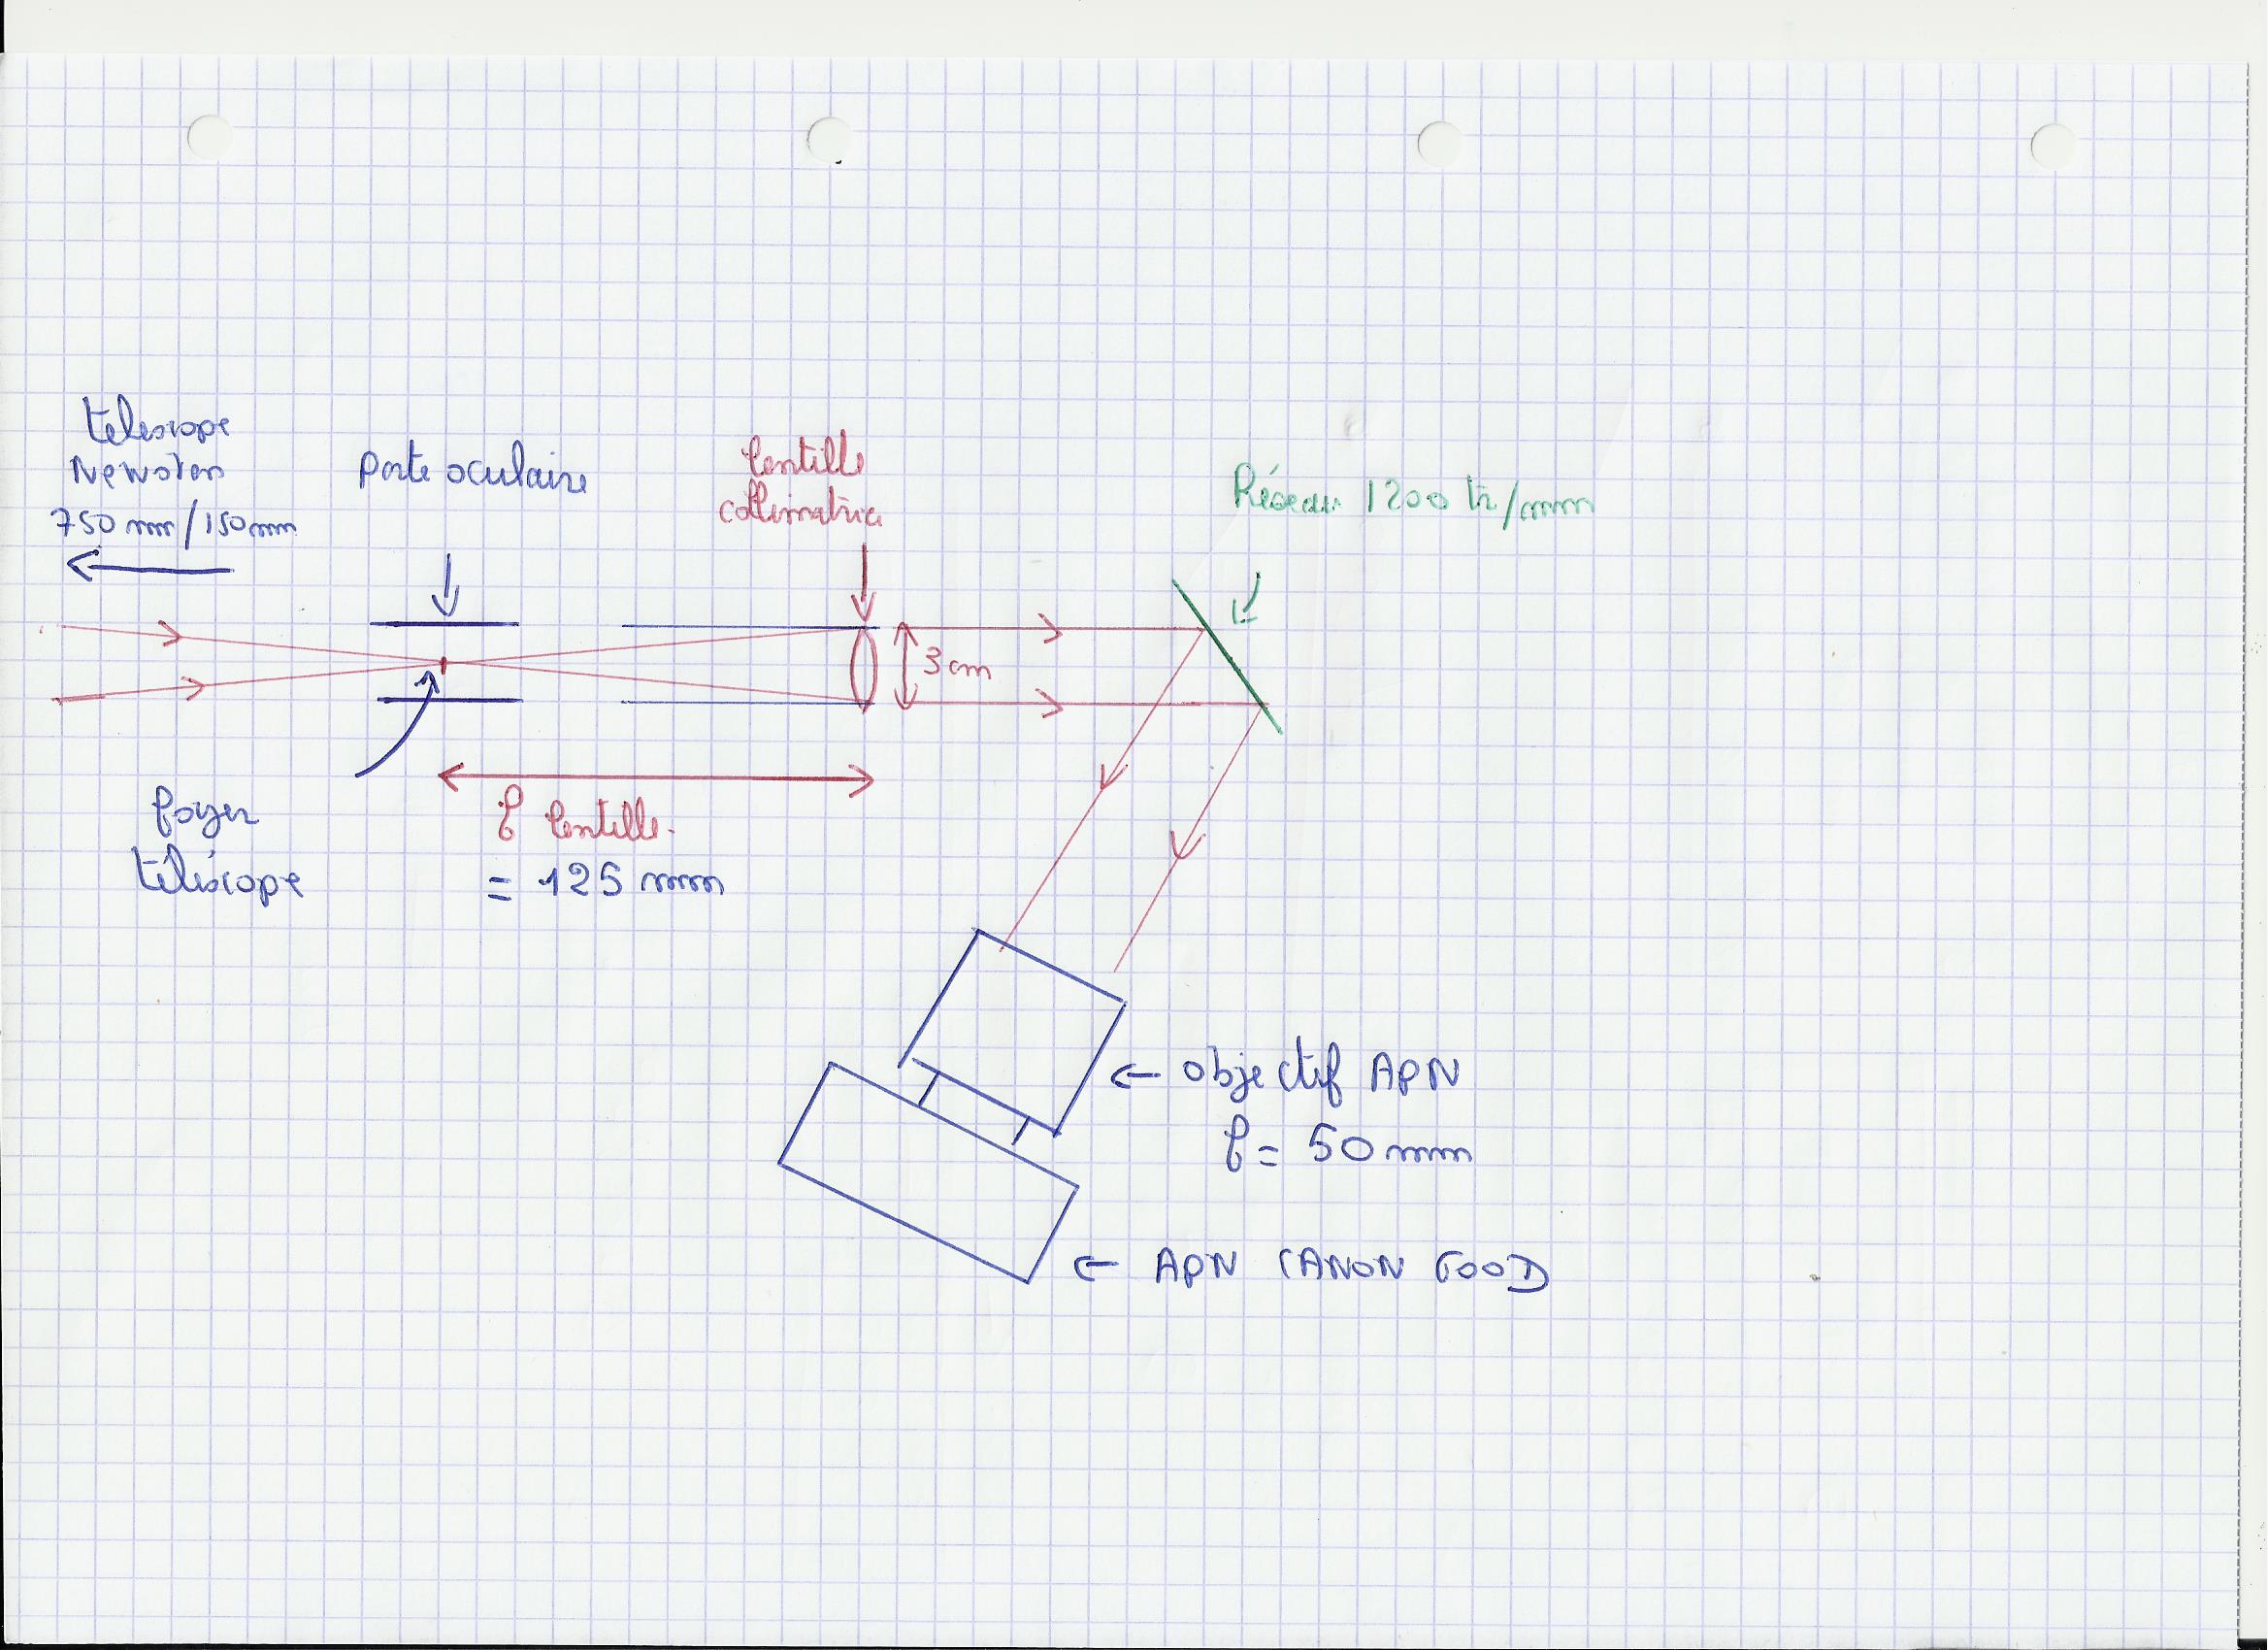 télescope
Newston
750 mm / 150 mm
Porte oculaire
lentille
collimatrice
Réseau 1200 tr/mm
3 cm
foyer
téléscope
f lentille.
= 125 mm
← objectif APN
f = 50 mm
← APN CANON 600D